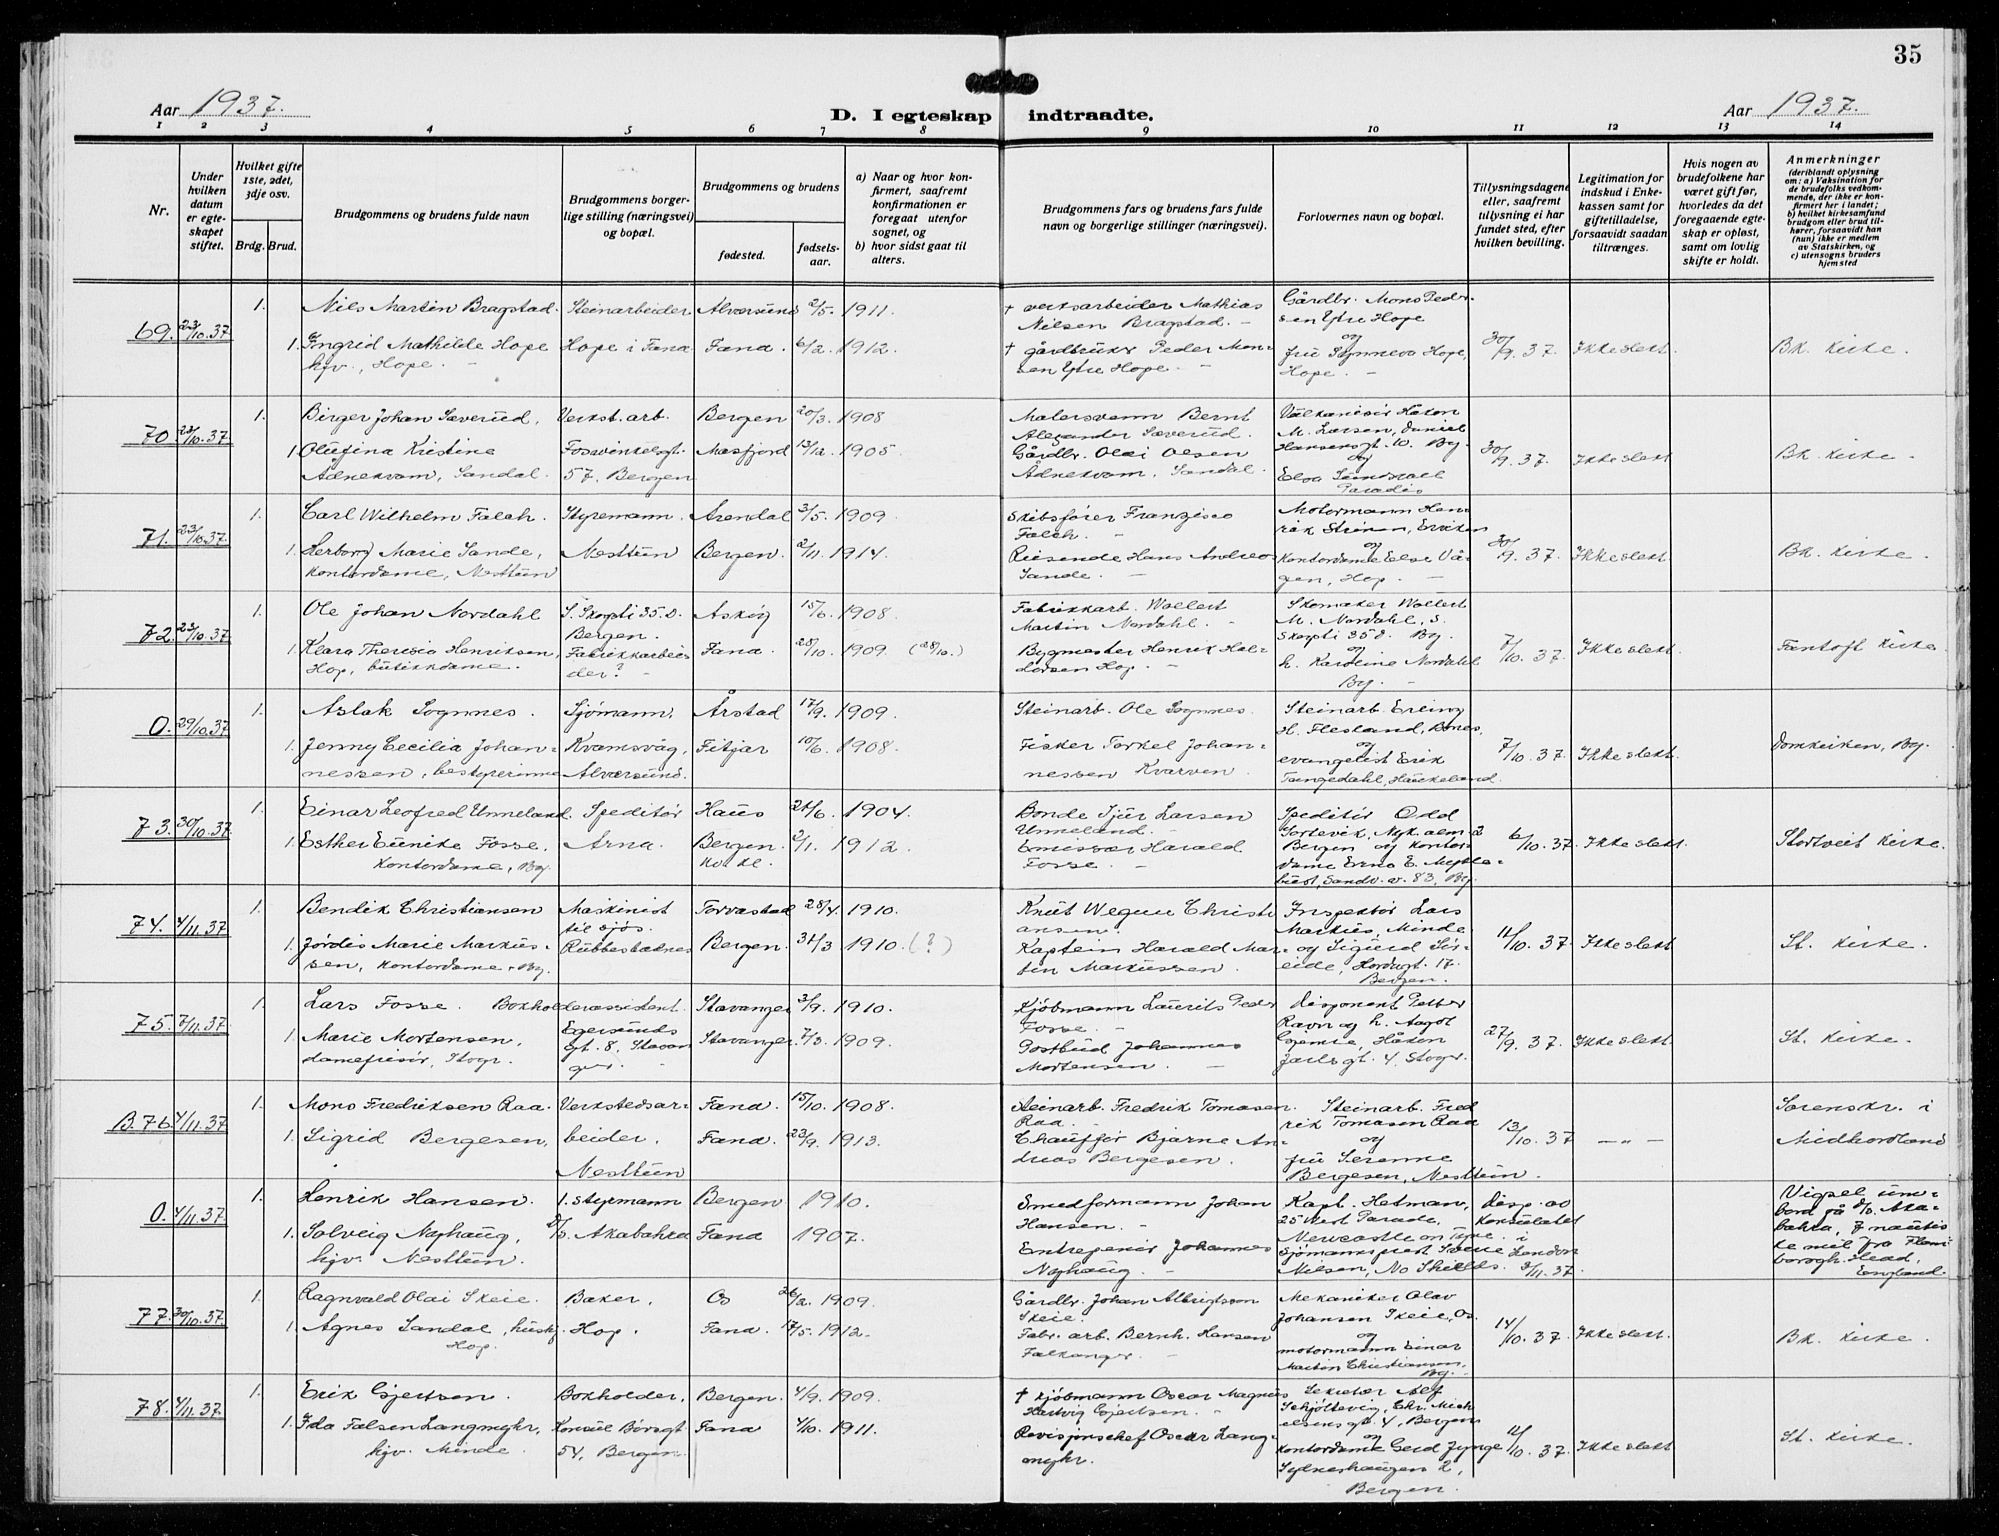 35
Aar 1937.
D. I egteskap indtraadte.
Aar 1937.
1 2 3 4 5 6 7 8 9 10 11 12 13 14
Nr.
Under hvilken datum er egteskapet stiftet.
Hvilket gifte 1ste, 2det, 3dje osv.
Brdg. Brud.
Brudgommens og brudens fulde navn
Brudgommens borgerlige stilling (næringsvei) og bopæl.
Brudgommens og brudens
fødested.
fødselsaar.
a) Naar og hvor konfirmert, saafremt konfirmationen er foregaat utenfor sognet, og
b) hvor sidst gaat til alters.
Brudgommens fars og brudens fars fulde navn og borgerlige stillinger (næringsvei).
Forlovernes navn og bopæl.
Tillysningsdagene eller, saafremt tillysning ei har fundet sted, efter hvilken bevilling.
Legitimation for indskud i Enkekassen samt for giftetilladelse, forsaavidt saadan tiltrænges.
Hvis nogen av brudefolkene har været gift før, hvorledes da det foregaaende egteskap er opløst, samt om lovlig skifte er holdt.
Anmerkninger (deriblandt oplysning om: a) Vaksination for de brudefolks vedkommende, der ikke er konfirmert her i landet; b) hvilket kirkesamfund brudgom eller brud tilhører, forsaavidt han (hun) ikke er medlem av Statskirken, og c) utensogns bruders hjemsted
69. 23/10.37 1. Nils Martin Bragstad. Steinarbeider Alversund 2/5. 1911. † verksarbeider Mathias Nielsen Bragstad. Gårdbr. Mons Pedersen Ytre Hope
1. Ingrid Mathilde Hope hjv., Hope. Hope i Fana Fana. 6/2. 1912. † gårdbruker Peder Monsen Ytre Hope. og fru Synneva Hope, Hope. 30/9. 37. Ikke slekt. Bk. Kirke.
70. 23/10.37 1. Birger Johan Sæverud, Verkst. arb. Bergen 20/3. 1908 Malersvenn Bernt Alexander Sæverud. M. Larsen, Daniel Hansensgt. 10. Bg.
1. Olufina Kristine Ådnekvam, Sandal. Fosswinkelsgt. 57, Bergen Masfjord 13/12. 1905 Gårdbr. Olai Olsen Ådnekvam, Sandal. og Paradis 30/9. 37. Ikke slekt Bk. Kirke.
71. 23/10.37 1. Carl Wilhelm Falch. Styrmann. Arendal 3/5. 1909. Skibsfører Franzisco Falch. Motormann Henrik
1. Herborg Marie Sande, kontordame, Nesttun Nesttun Bergen. 2/11. 1914. Reisende Hans Andreas Sande. og Kontordame Else Vågen, Hop. 30/9. 37. Ikke slekt. Bk. Kirke.
72. 23/10.37 1. Ole Johan Nordahl S. Skogti 35. D. Bergen. Askøy 15/6. 1908 Fabrikkarb. Wollert Martin Nordahl. Skomaker Wollert M. Nordahl, S. Skogti 35 d. Bg.
1. Klara Theresia Henriksen, Hop, butikkdame. Fabrikkarbeider? Fana. 28/10. 1909 (28/10.) Bygmester Henrik Haldorsen Hop. og h. Karoline Nordahl Bg. 7/10. 37. Ikke slekt Fantoft Kirke.
0. 29/10.37 1. Aslak Sognnes. Sjømann, Årstad 17/9. 1909. Steinarb. Ole Sognnes. Steinarb. Erling H. Flesland, Bønes,
1. Jenny Cecilia Johannessen, bestyrerinne Kvamsvåg, Alversund. Fitjar 10/6. 1908. Fisker Torkel Johannessen Kvarven. og evangelist Erik Tangedahl, Haukeland. 7/10. 37 Ikke slekt. Domkirken, Bg.
73. 30/10.37 1. Einar Leofred Unneland. Speditør Haus 24/6. 1904. Bonde Sjur Larsen Unneland. Speditør Odd
1. Esther Eunike Fosse, Kontordame, Bg. Arna. Bergen 2/1. 1912. Emissær Harald Fosse. Bergen og Kontordame Erna E. Myklebust, Sandv. v. 83, Bg. 6/10. 37. Ikke slekt. Storetveit Kirke.
74. 4/11.37 1. Bendik Christiansen Maskinist til sjøs. Torvastad 28/4. 1910. Knut Wegner Christiansen. Inspektør Lars Markus, Minde
1. Jørdis Marie Markussen, kontordame, Bg. Rubbestadnes Bergen. 31/3 1910. (?) Kaptein Harald Martin Markussen. og Sigurd Søreide, Hordagt. 17. Bergen. 11/10. 37 Ikke slekt. St. Kirke.
75. 7/11.37 1. Lars Fosse. Bokholderassistent. Stavanger 3/9. 1910. Kjøbmann Lauritz Peder Fosse. Disponent Petter Ravn og h. Aagot
1. Marie Mortensen, damefrisør, Stvgr. Egersundsgt. 8, Stavanger. Stavanger. 7/3. 1909. Postbud Johannes Mortensen. Håkon Jarlsgt. 4, Stvgr. 27/9. 37. Ikke slekt. St. Kirke.
B. 76. 4/11.37 1. Mons Fredriksen Raa. Verkstedsarbeider, Fana. 15/10. 1908. Steinarb. Fredrik Tomasen Raa. Steinarb. Fredrik Tomasen Raa Sorenskr. i
1. Sigrid Bergesen, Nesttun Fana. 23/9. 1913. Chauffør Bjarne Andreas Bergesen. og fru Serenne Bergesen, Nesttun. 13/10. 37 — „ — Midhordland
0. 4/11.37 1. Henrik Hansen. 1. styrmann Bergen 1910. Smedformann Johan Hansen. Kapt. Hetman, 25 West Parade, Newcastle on Tyne. Disp. av Konsulatet i
1. Solveig Nøphaug, hjv. Nesttun. D/S. Akabahra Fana 1907. Entreprenør Johannes Nøphaug. Sjømannsprest Nilsen, No Shields. London 2/11. 37. Vigsel umbord på D/S. Akabahra, 7 nautiske mil fra Flamborogh. Head, England.
77. 30/10.37 1. Ragnvald Olai Skeie. Baker, Os 26/2. 1909. Gårdbr. Johan Albrigtsen Skeie. Mekaniker Olav Johansen Skeie, Os.
1. Agnes Sandal, hushj. Hop. Hop. Fana. 17/5. 1912. Fabr. arb. Bernh. Hansen Falkanger. og motormann Einar Martin Christiansen, Bg. 14/10. 37. Ikke slekt. Bk. Kirke.
78. 4/11.37. 1. Erik Gjertsen. Bokholder, Bergen. 4/9. 1909. † kjøbmann Oscar Magnus Hartvig Gjertsen. Sekretær Alf Schjøttevig, Chr. Michelsensgt. 4, Bergen
1. Ida Falsen Langmyhr, hjv. Minde. Konsul Børsgt. 54, Bergen. Fana 4/10. 1911. Revisjonschef Oscar Langmyhr. og kontordame Gerd Jynge Sydneshaugen 2, Bergen. 12/10. 37. Ikke slekt. St. Kirke.